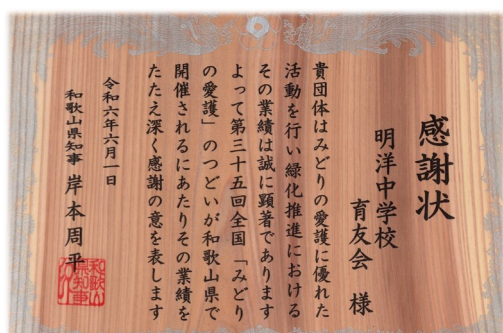 感謝状
明洋中学校
育友会 様
貴団体はみどりの愛護に優れた
活動を行い緑化推進における
その業績は誠に顕著であります
よって第三十五回全国「みどり
の愛護」のつどいが和歌山県で
開催されるにあたりその業績を
たたえ深く感謝の意を表します
令和六年六月一日
和歌山県知事 岸本周平
和歌山
県知事